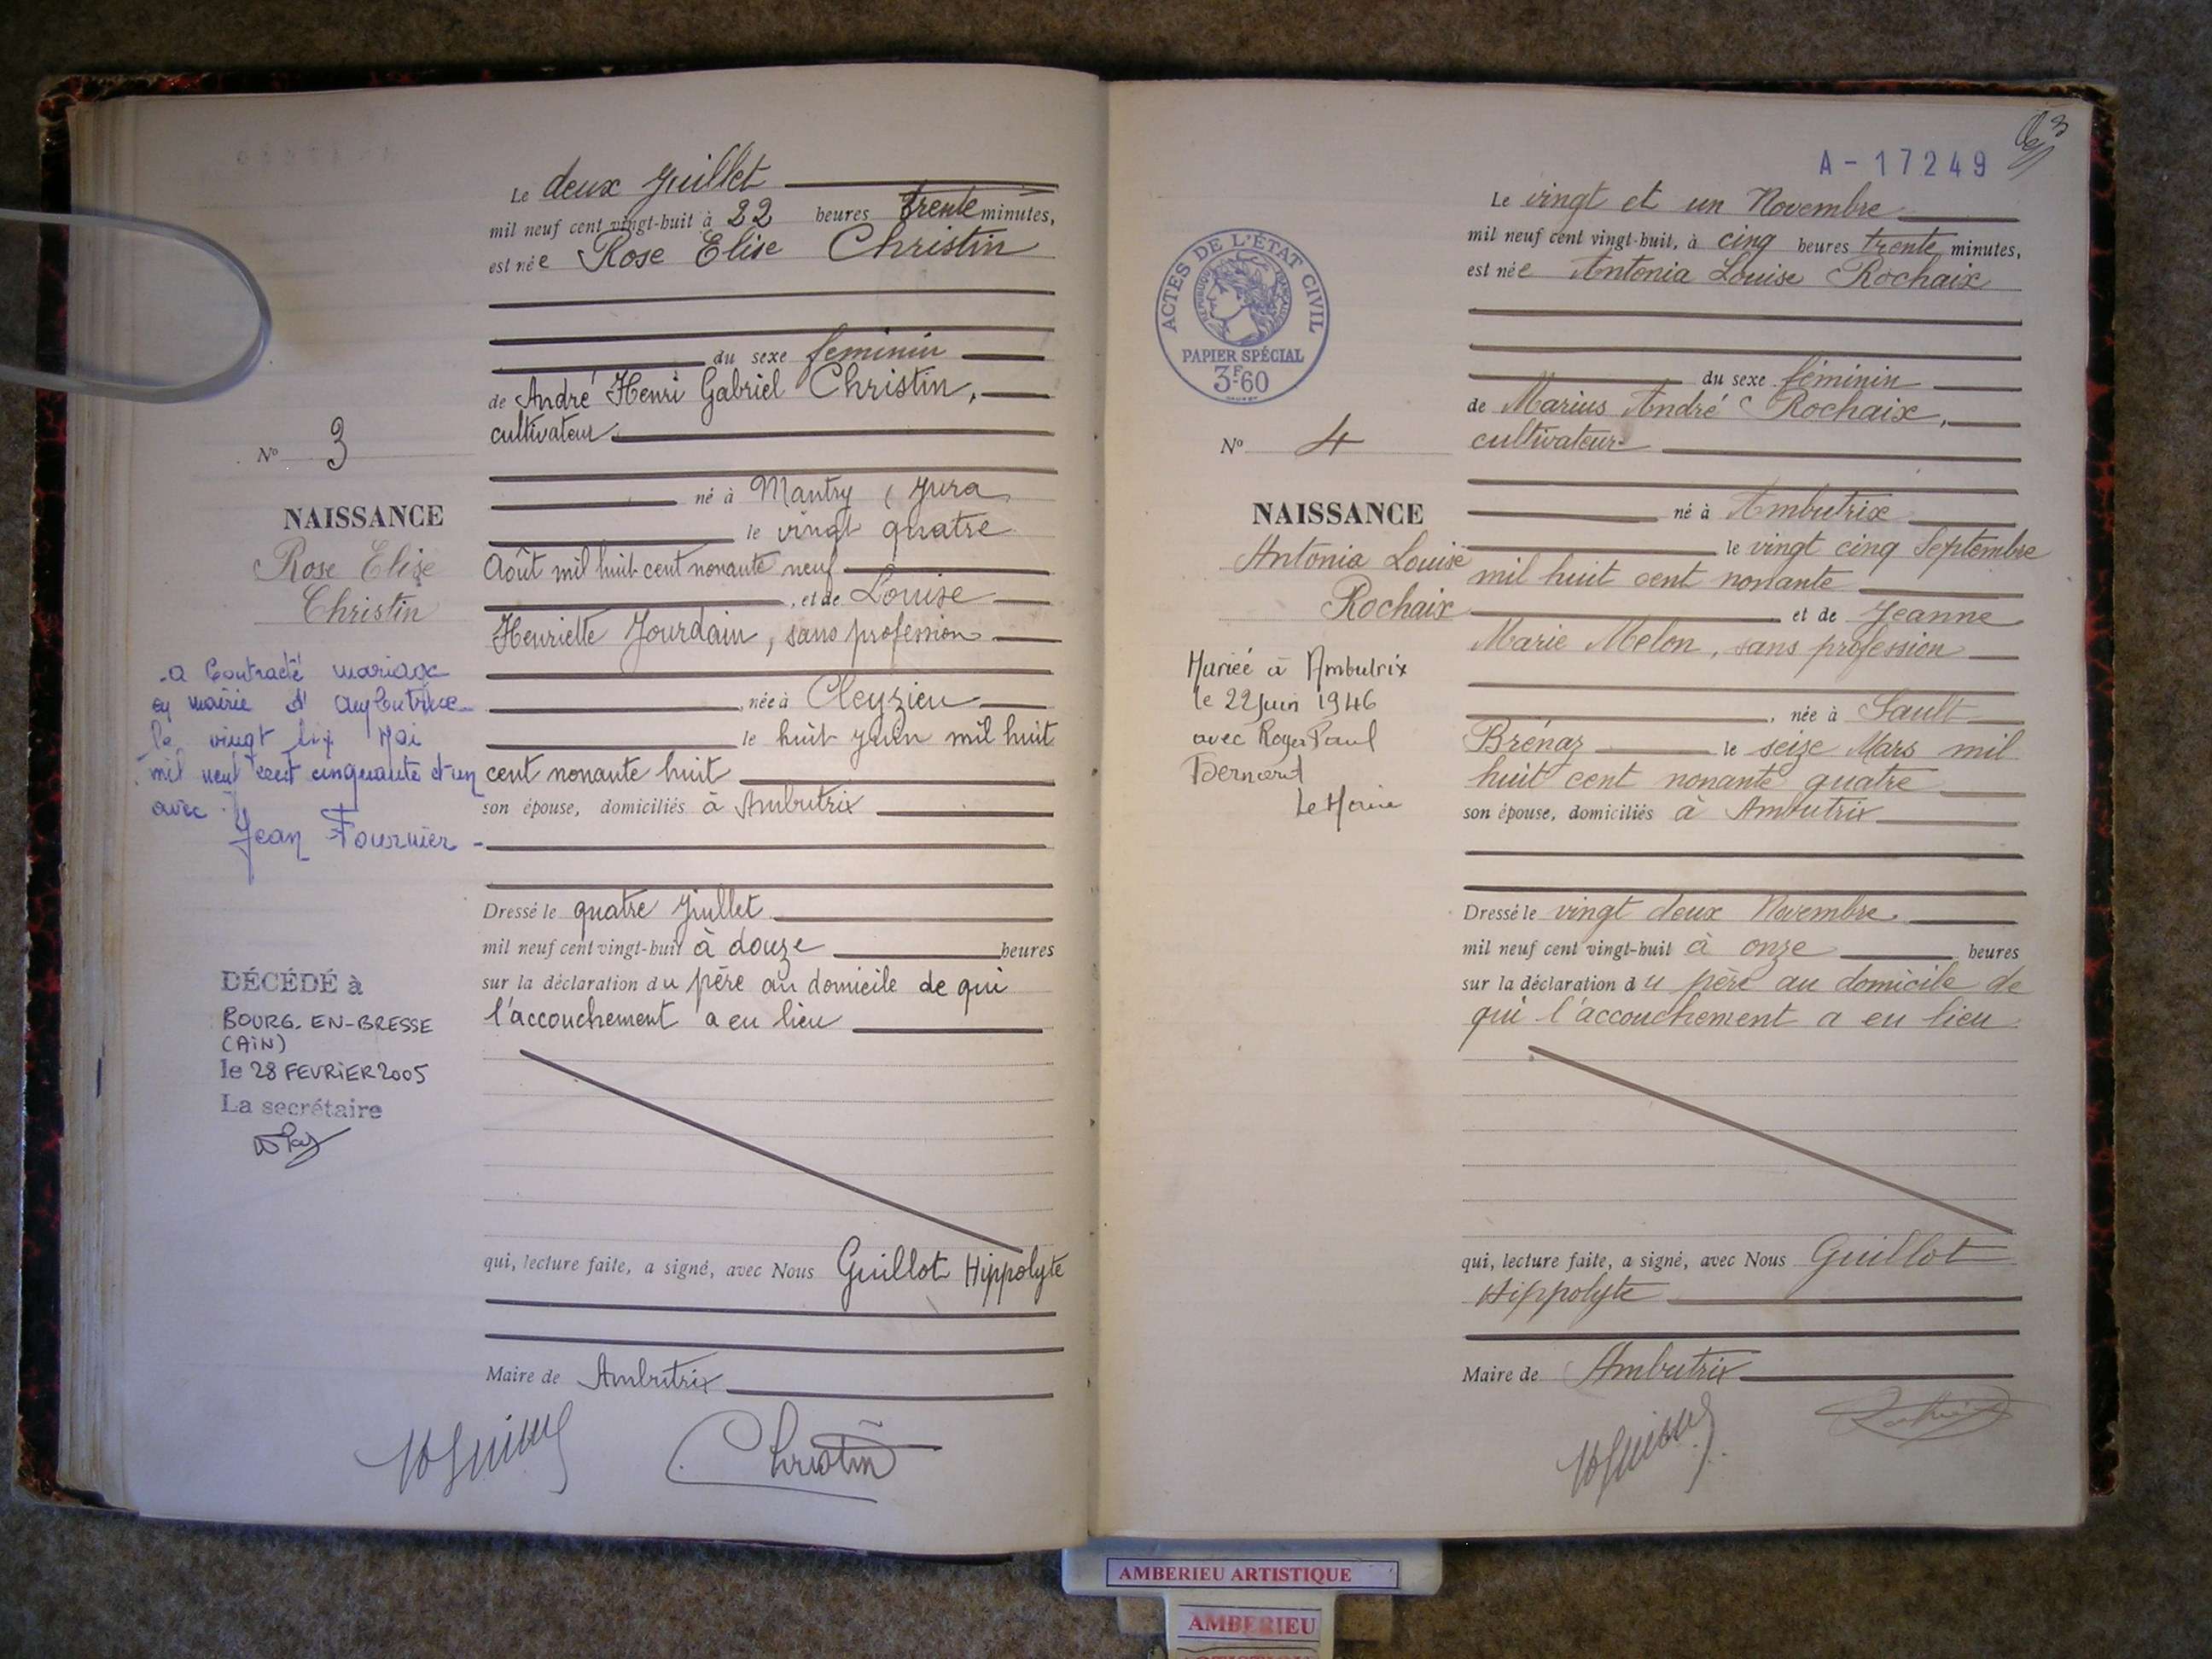 Le deux Juillet
mil neuf cent vingt-huit à 22 heures trente minutes,
est née Rose Elise Christin
du sexe féminin
de André Henri Gabriel Christin,
cultivateur
né à Mantry (Jura
le vingt quatre
Août mil huit cent nonante neuf
, et de Louise
Henriette Jourdain, sans profession
, née à Cleyzieu
le huit Juin mil huit
cent nonante huit
son épouse, domiciliés à Ambutrix
Dressé le quatre Juillet
mil neuf cent vingt-huit à douze heures
sur la déclaration du père au domicile de qui
l'accouchement a eu lieu
qui, lecture faite, a signé, avec Nous Guillot Hippolyte
Maire de Ambutrix
Christin
No 3
NAISSANCE
Rose Elise
Christin
a Contracté mariage
en mairie d'Ambutrix
le vingt six Mai
mil neuf cent cinquante et un
avec
Jean Fournier
DÉCÉDÉ à
BOURG-EN-BRESSE
(AIN)
le 28 FEVRIER 2005
La secrétaire
A-17249
Le vingt et un Novembre
mil neuf cent vingt-huit, à cinq heures trente minutes,
est née Antonia Louise Rochaix
du sexe féminin
de Marius André Rochaix,
cultivateur
né à Ambutrix
le vingt cinq Septembre
mil huit cent nonante
et de Jeanne
Marie Melon, sans profession
, née à Sault
Brénaz le seize Mars mil
huit cent nonante quatre
son épouse, domiciliés à Ambutrix
Dressé le vingt deux Novembre
mil neuf cent vingt-huit à onze heures
sur la déclaration du père au domicile de
qui l'accouchement a eu lieu
qui, lecture faite, a signé, avec Nous Guillot
Hippolyte
Maire de Ambutrix
ACTES DE L'ÉTAT CIVIL
RÉPUBLIQUE FRANÇAISE
PAPIER SPÉCIAL
3F60
No 4
NAISSANCE
Antonia Louise
Rochaix
Mariée à Ambutrix
le 22 Juin 1946
avec Roger Paul
Bernard
Le Maire
AMBERIEU ARTISTIQUE
AMBERIEU